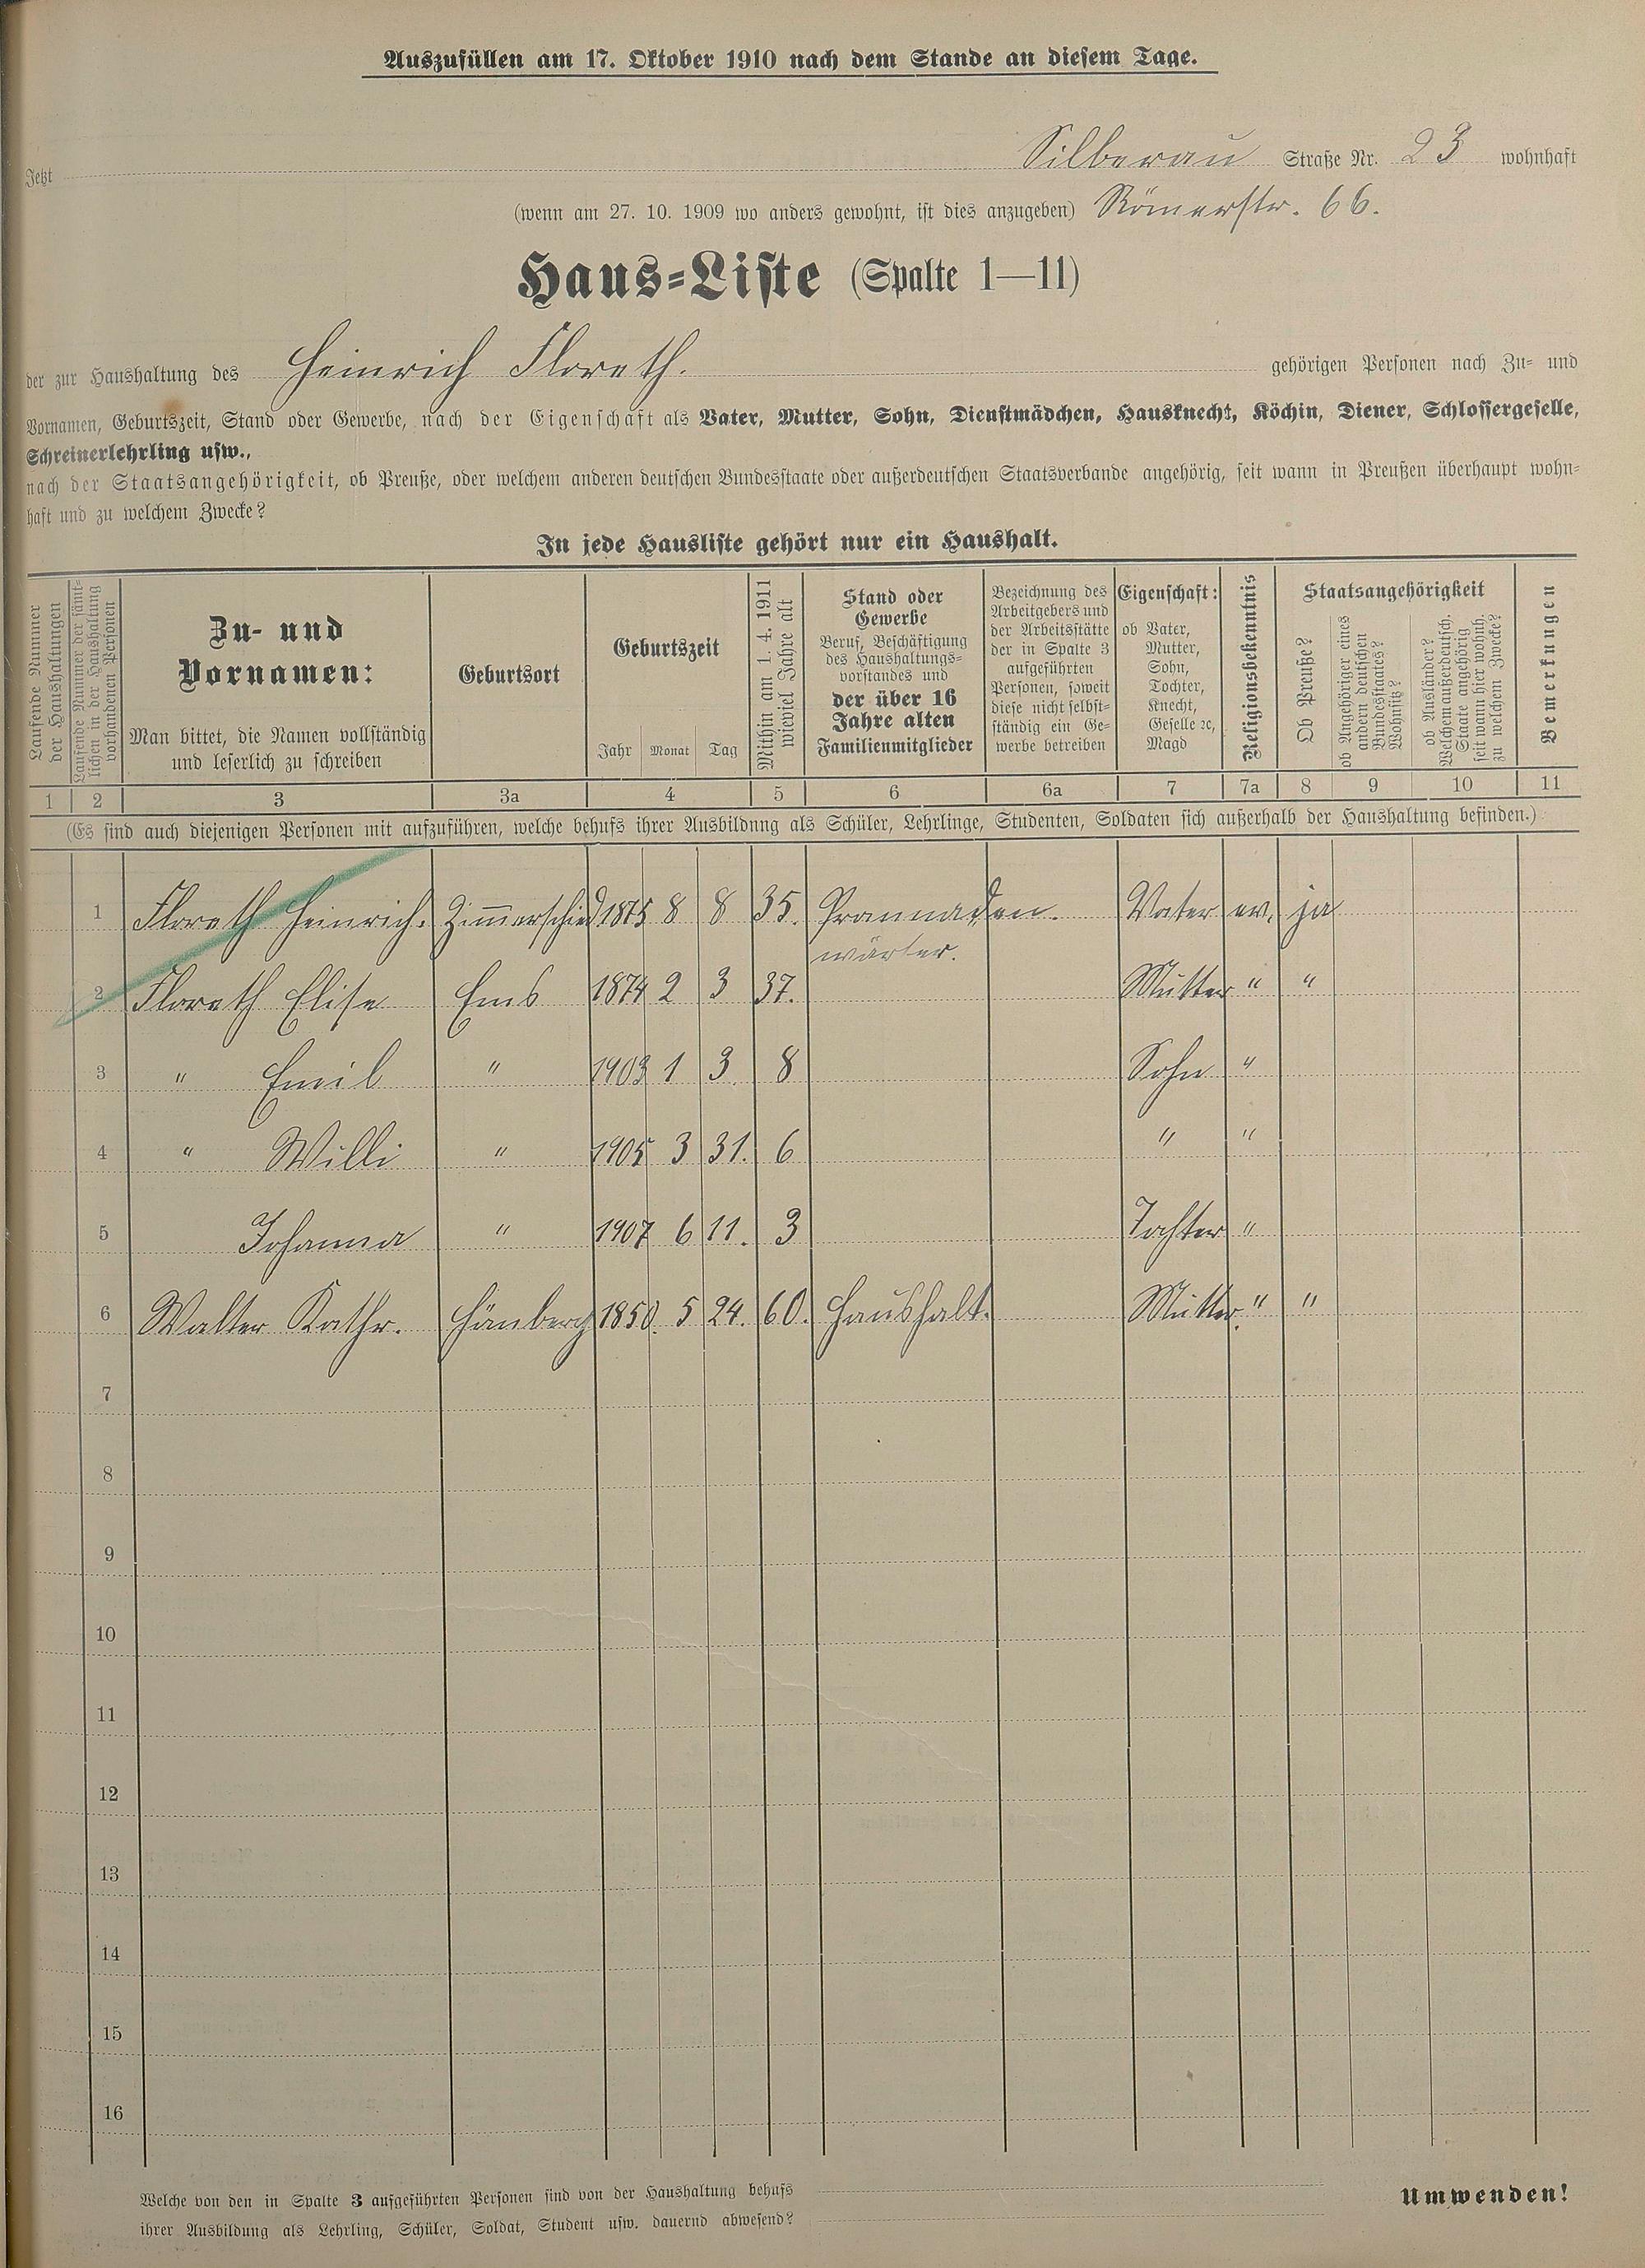 Auszufüllen am 17. Oktober 1910 nach dem Stande an diesem Tage.
Jetzt Silberau Straße Nr. 23 wohnhaft
(wenn am 27. 10. 1909 wo anders gewohnt, ist dies anzugeben) Römerstr. 66.
Haus=Liste (Spalte 1—11)
der zur Haushaltung des Heinrich Floreth. gehörigen Personen nach Zu= und
Vornamen, Geburtszeit, Stand oder Gewerbe, nach der Eigenschaft als Vater, Mutter, Sohn, Dienstmädchen, Hausknecht, Köchin, Diener, Schlossergeselle,
Schreinerlehrling usw.,
nach der Staatsangehörigkeit, ob Preuße, oder welchem anderen deutschen Bundesstaate oder außerdeutschen Staatsverbande angehörig, seit wann in Preußen überhaupt wohn=
haft und zu welchem Zwecke?
In jede Hausliste gehört nur ein Haushalt.
Laufende Nummer
der Haushaltungen
Laufende Nummer der sämt=
lichen in der Haushaltung
vorhandenen Personen
Zu- und
Vornamen:
Man bittet, die Namen vollständig
und leserlich zu schreiben
Geburtsort
Geburtszeit
Jahr Monat Tag
Mithin am 1. 4. 1911
wieviel Jahre alt
Stand oder
Gewerbe
Beruf, Beschäftigung
des Haushaltungs=
vorstandes und
der über 16
Jahre alten
Familienmitglieder
Bezeichnung des
Arbeitgebers und
der Arbeitsstätte
der in Spalte 3
aufgeführten
Personen, soweit
diese nicht selbst=
ständig ein Ge=
werbe betreiben
Eigenschaft:
ob Vater,
Mutter,
Sohn,
Tochter,
Knecht,
Geselle ꝛc,
Magd
Religionsbekenntnis
Staatsangehörigkeit
Ob Preuße?
ob Angehöriger eines
andern deutschen
Bundesstaates?
Wohnsitz?
ob Ausländer?
Welchem außerdeutsch.
Staate angehörig
seit wann hier wohnh.
zu welchem Zwecke?
Bemerkungen
1 2 3 3a 4 5 6 6a 7 7a 8 9 10 11
(Es sind auch diejenigen Personen mit aufzuführen, welche behufs ihrer Ausbildung als Schüler, Lehrlinge, Studenten, Soldaten sich außerhalb der Haushaltung befinden.)
1 Floreth Heinrich. Zimmerschied 1875 8 8 35. Promnaden. Vater ev. ja
wärter.
2 Floreth Elise Ems 1874 2 3 37. Mutter " "
3 " Emil " 1903 1 3. 8 Sohn "
4 " Willi " 1905 3 31. 6 " "
5 Johanna " 1907 6 11. 3 Tochter "
6 Walter Kathr. 1850. 5 24. 60. Haushalt. Mutter. " "
7
8
9
10
11
12
13
14
15
16
Welche von den in Spalte 3 aufgeführten Personen sind von der Haushaltung behufs
ihrer Ausbildung als Lehrling, Schüler, Soldat, Student usw. dauernd abwesend?
Umwenden!